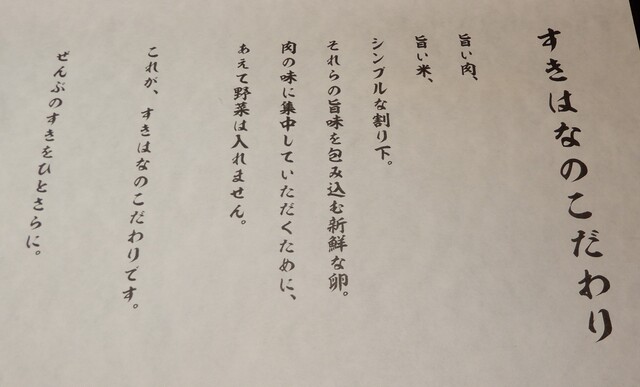 すきはなのこだわり
旨い肉、
旨い米、
シンプルな割り下。
それらの旨味を包み込む新鮮な卵。
肉の味に集中していただくために、
あえて野菜は入れません。
これが、すきはなのこだわりです。
ぜんぶのすきをひとさらに。